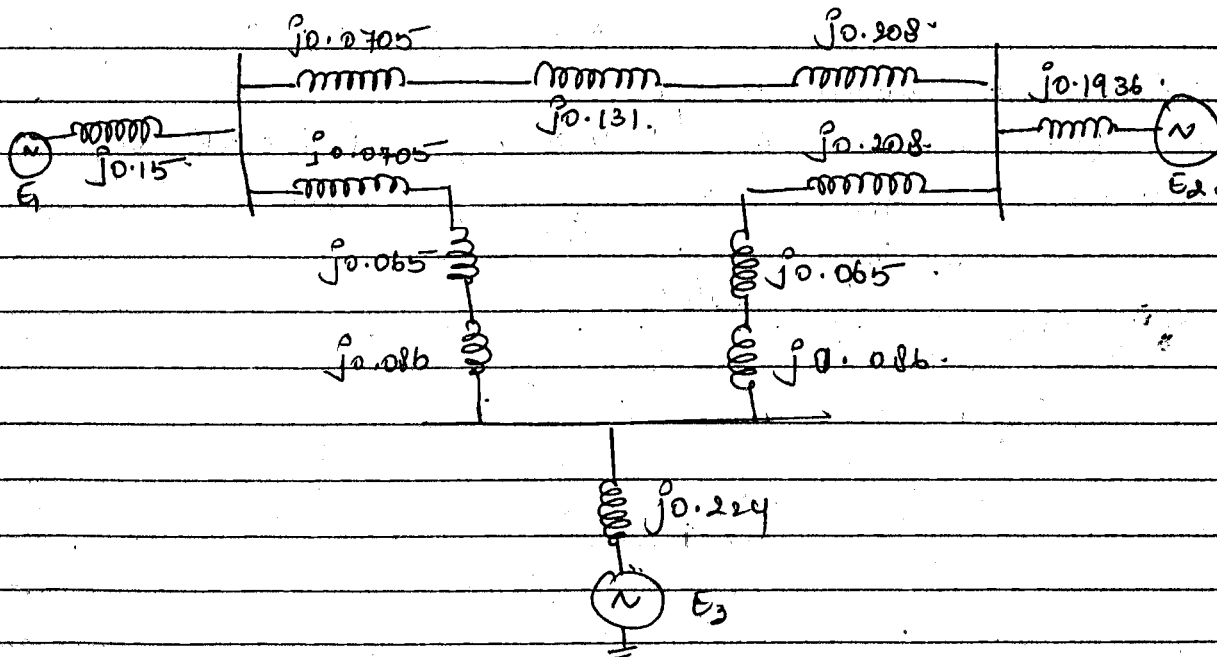 j0.0705 j0.208
j0.131 j0.1936
j0.15 j0.0705 j0.208
E1 E2
j0.065 j0.065
j0.086 j0.086
j0.224
E3